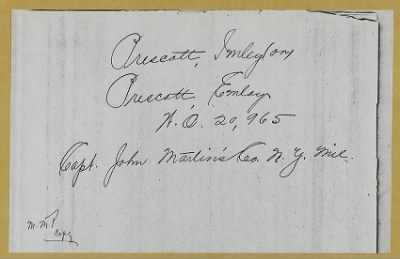 Prescott, Imley (or)
Prescott, Emley
W.O. 20,965
Capt. John Martin's Co. N.Y. Mil.
Copy